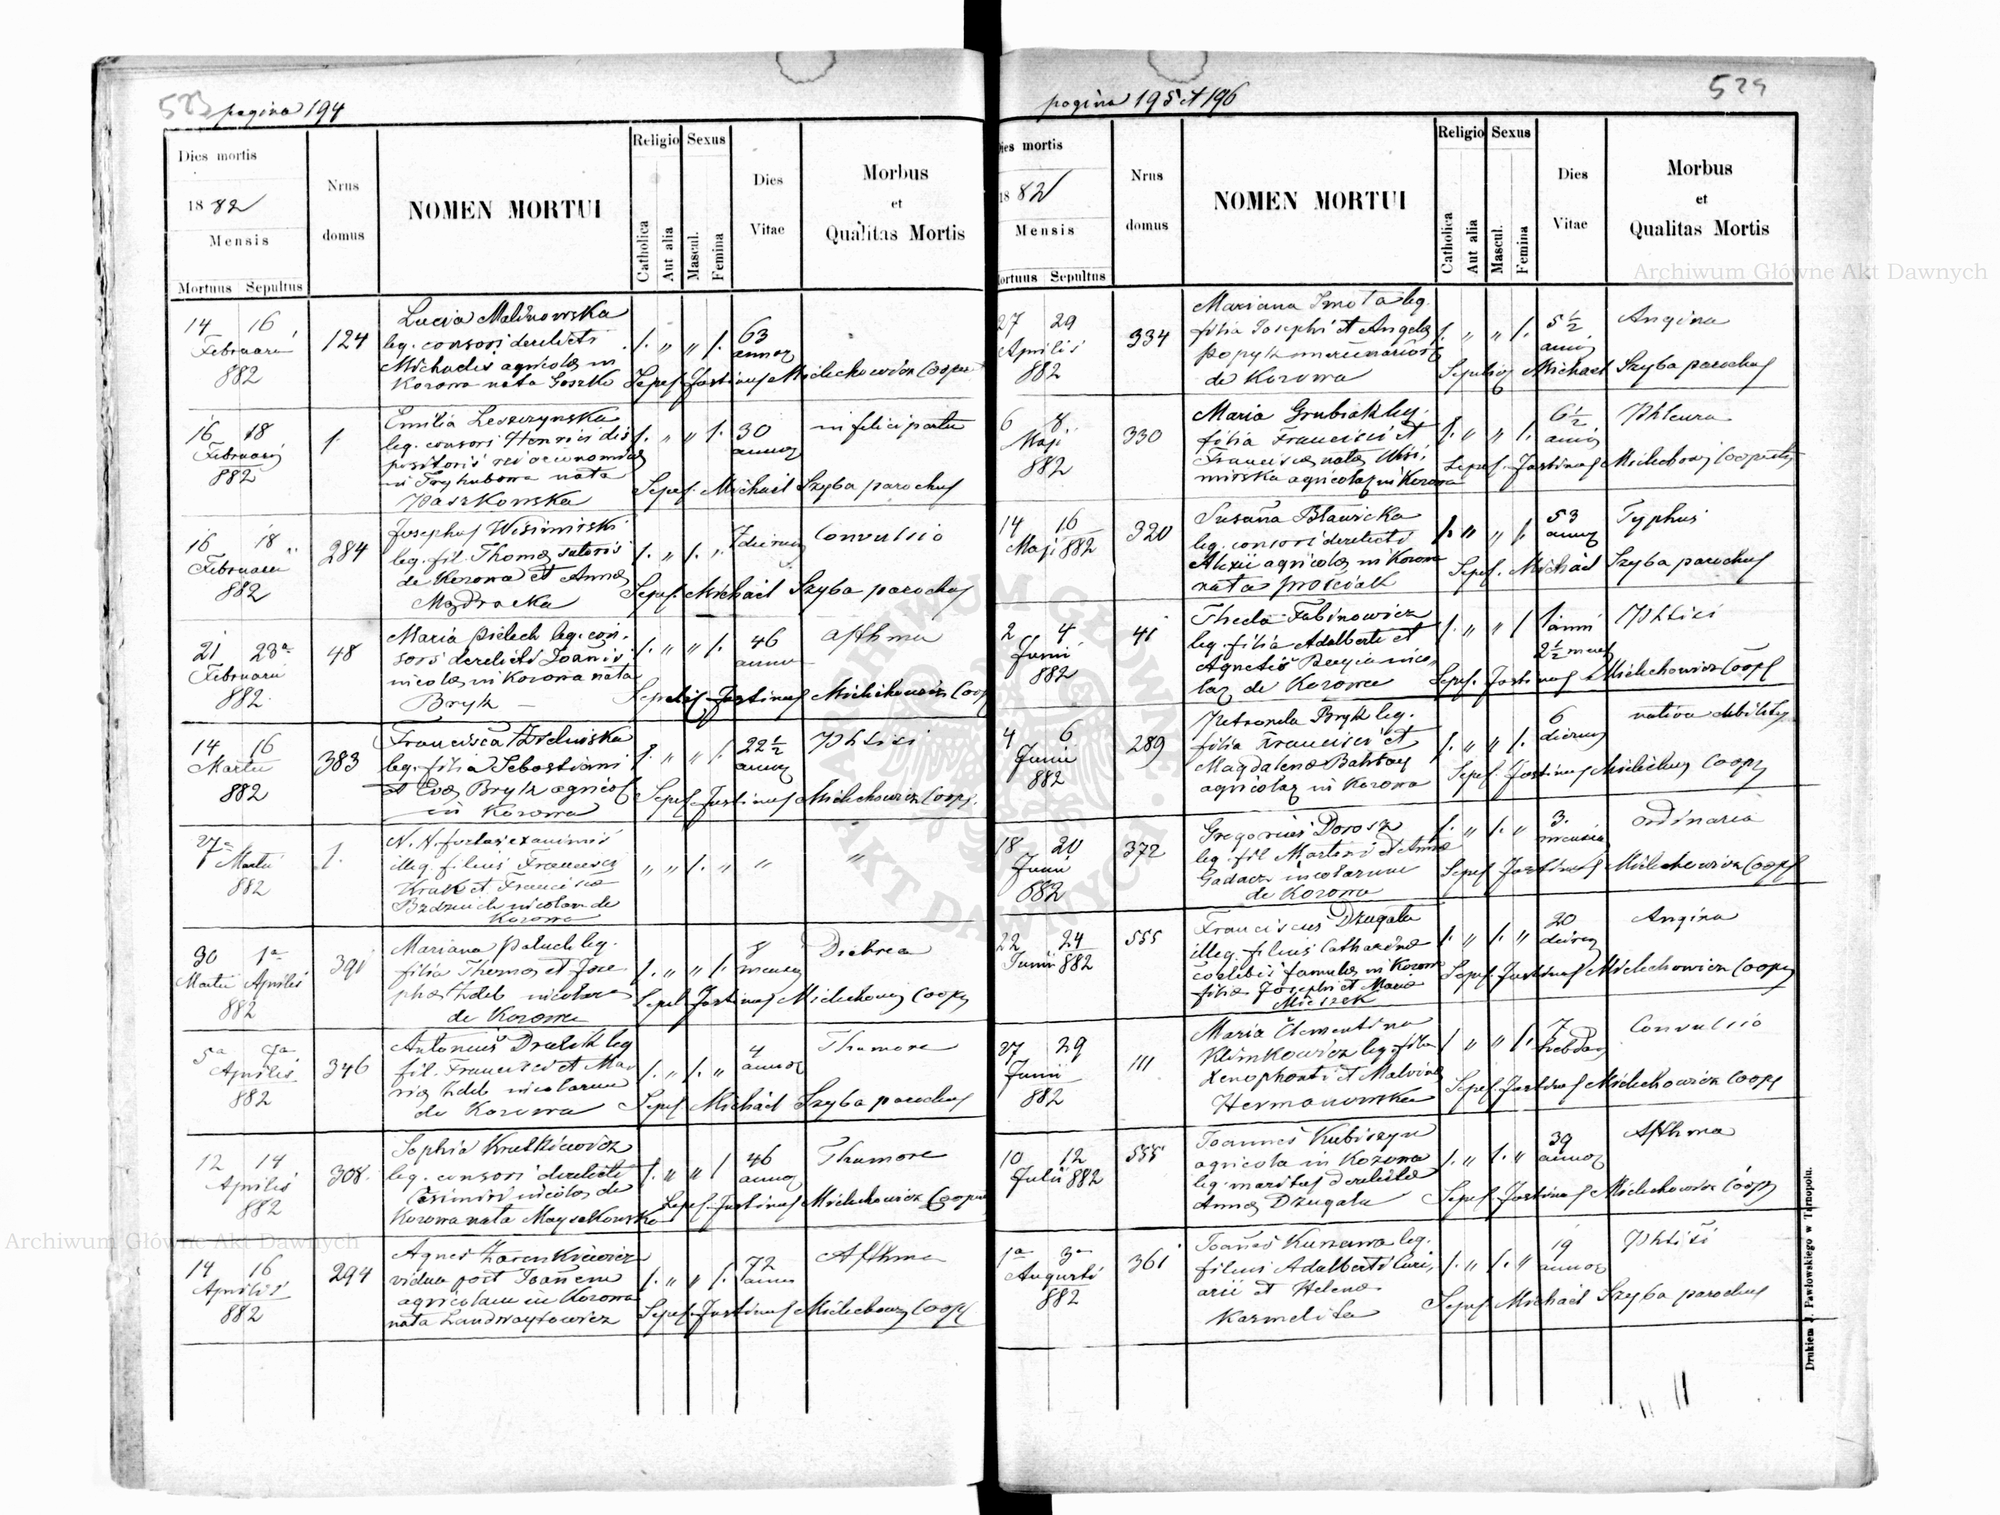 523 pagina 194
Dies mortis
18 82
Mensis
Mortuus Sepultus
Nrus domus
NOMEN MORTUI
Religio
Catholica
Aut alia
Sexus
Mascul.
Femina
Dies Vitae
Morbus et Qualitas Mortis
14 16 Februarii 882
124
Lucia Malinowska
leg. consors derelicti
Michaelis agricolae in
Korowa nata
1. " " 1.
63 annor
Sepel. Justinus Mielechowicz Cooper
16 18 Februarii 882
1.
Emilia Leszczynska
leg. consors Henrici dis
positoris rei oeconomicae
in Tryhubowa nata
Waszkowska
1. " " 1.
30 annor
infelici partu
Sepel. Michael Szyba parochus
16 18 Februarii 882
284
Josephus Wisimirski
leg. fil. Thomae sutoris
de Korowa et Annae
Mazdracka
1. " 1. "
7 dierum
Convulsio
Sepel. Michael Szyba parochus
21 23a Februarii 882
48
Maria Pielech leg. con
sors derelicti Joannis
incolae in Korowa nata
Bryk
1. " " 1.
46 annor
Asthma
Sepeliv. Justinus Mielechowicz Coop
14 16 Martii 882
383
Francisca
leg. filia Sebastiani
et Evae Bryk agricol
in Korowa
1. " " 1.
22½ annor
Phtisi
Sepel. Justinus Mielechowicz Coop.
27a Martii 882
1.
N. N. foetus exanimis
illeg. filius Francisci
Kruk et Franciscae
incolar de
Korowa
" " 1. " " "
30 Martii 1a Aprilis 882
391
Mariana Paluch leg.
filia Thomae et Jose
phae Zdeb incolar
de Korowa
1. " " 1.
8 menses
Diahrea
Sepel. Justinus Mielechowicz Coop
5a 7a Aprilis 882
346
Antonius leg
fil. Francisci et Ma
riae Zdeb incolarum
de Korowa
1. " 1. "
4 annor
Thumore
Sepel. Michael Szyba parochus
12 14 Aprilis 882
308.
Sophia Krutkiewicz
leg. consors derelicti
Casimiri incolae de
Korowa nata Maysakowska
1. " " 1
46 annor
Thumore
Sepel. Justinus Mielechowicz Cooper
14 16 Aprilis 882
294
Agnes
vidua post Joannem
agricolam in Korowa
nata Landwaytowicz
1. " " 1.
72 annor
Asthma
Sepel. Justinus Mielechowicz Coop
pagina 195 et 196
529
Dies mortis
18 82
Mensis
Mortuus Sepultus
Nrus domus
NOMEN MORTUI
Religio
Catholica
Aut alia
Sexus
Mascul.
Femina
Dies Vitae
Morbus et Qualitas Mortis
27 29 Aprilis 882
334
Mariana Smota leg.
filia Josephi et Angelae
Popyk mercenarior
de Korowa
1. " " 1.
5½ anni
Angina
Sepeliv Michael Szyba parochus
6 8. Maji 882
330
Maria Grubiak leg.
filia Francisci et
Franciscae natae Wisi
mirska agricolar in Korowa
1. " " 1.
6½ anni
Phleura
Sepel. Justinus Mielechowicz Cooper
14 16 Maji 882
320
Susana Blawicka
leg. consors derelicti
Alexii agricolae in Korowa
nata Prosciak
1. " " 1
53 annor
Typhus
Sepel. Michael Szyba parochus
2 4 Junii 882
41
Thecla Fabinowicz
leg. filia Adalberti et
Agnetis inco
lar de Korowa
1. " " 1
1 anni 2½ mens
Phtisi
Sepel. Justinus Mielechowicz Coop
4 6 Junii 882
289
Petronela Bryk leg.
filia Francisci et
Magdalenae
agricolar in Korowa
1. " " 1.
6 dierum
nativa debilitas
Sepel. Justinus Mielechowicz Coop
18 20 Junii 882
372
Gregorius Dorosz
leg. fil Martini et Annae
Gadacz incolarum
de Korowa
1. " 1. "
3. mensium
ordinaria
Sepel. Justinus Mielechowicz Coop
22 24 Junii 882
555
Franciscus Dzugala
illeg. filius Catharinae
coelibis famulae in Korowa
filiae Josephi et Mariae
Mieszek
1. " 1. "
20 dierum
Angina
Sepel. Justinus Mielechowicz Coop
27 29 Junii 882
111
Maria Clementina
Klimkowicz leg. filia
Xenophonti et Malvinae
Hermanowska
1 " " 1.
7 hebdom
Convulsio
Sepel. Justinus Mielechowicz Coop
10 12 Julii 882
555
Joannes Kubiszyn
agricola in Korowa
leg. maritus derelictae
Annae Dzugala
1. " 1. "
39 annor
Asthma
Sepel. Justinus Mielechowicz Coop
1a 3a Augusti 882
361
Joanes Kurzawa leg.
filius Adalberti
arii et Helenae
Karmelita
1. " 1. "
19 annor
Phtisi
Sepel. Michael Szyba parochus
Drukiem J. Pawłowskiego w Tarnopolu.
Archiwum Główne Akt Dawnych
Archiwum Główne Akt Dawnych
ARCHIWUM GŁÓWNE AKT DAWNYCH